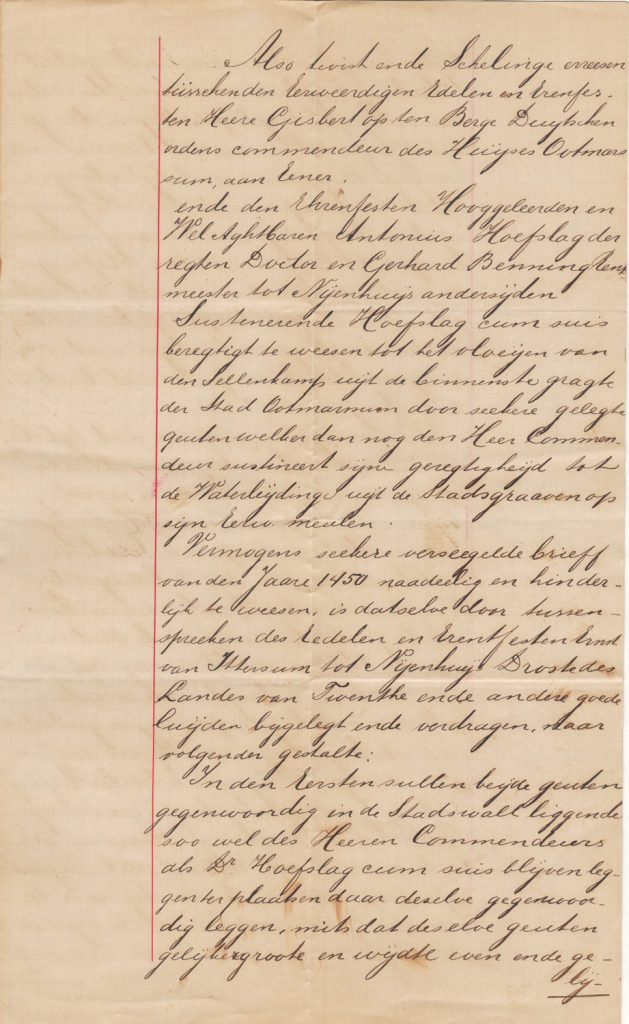 Also twist ende Schelinge erreesen
tüsschen den Eerweerdigen Edelen en Erenfes-
ten Heere Gisbert op ten Berge Duytschen
ordens commendeur des Huijses Ootmars
sum, aan Eener.
ende den Ehrenfesten Hooggeleerden en
Wel Aghtbaren Antonius Hoefslag der
regten Doctor en Gerhard Benning Rent
meester tot Nijenhuijs andersijden
Sustenerende Hoefslag cum suis
beregtigt te weesen tot het vloeijen van
den Sellenkamp uijt de binnenste gragte
der Stad Ootmarmum door seekere gelegte
geuten welker dan nog den Heer Commen-
deur sustineert sijne geregtigheijd tot
de Waterleijding uijt de Stadsgraaven op
sijn Eerw. meulen.
Vermogens seekere verseegelde brieff
van den Jaare 1450 naadeelig en hinder-
lijk te weesen, is datselve door tussen-
spreeken des Eedelen en Erentfesten Ernst
van Ittersum tot Nijenhuijs Droste des
Landes van Twenthe ende andere goede
luijden bijgelegt ende verdragen, naar
volgender gestalte:
In den Eersten sullen beijde geuten
gegenwoordig in de Stadswall liggende
soo wel des Heeren Commendeurs
als Dr Hoefslag cum suis blijven leg-
gen ter plaatsen daar deselve gegenwoor-
dig leggen, mits dat deselve geuten
gelijker groote en wijdte even ende ge-
lij-